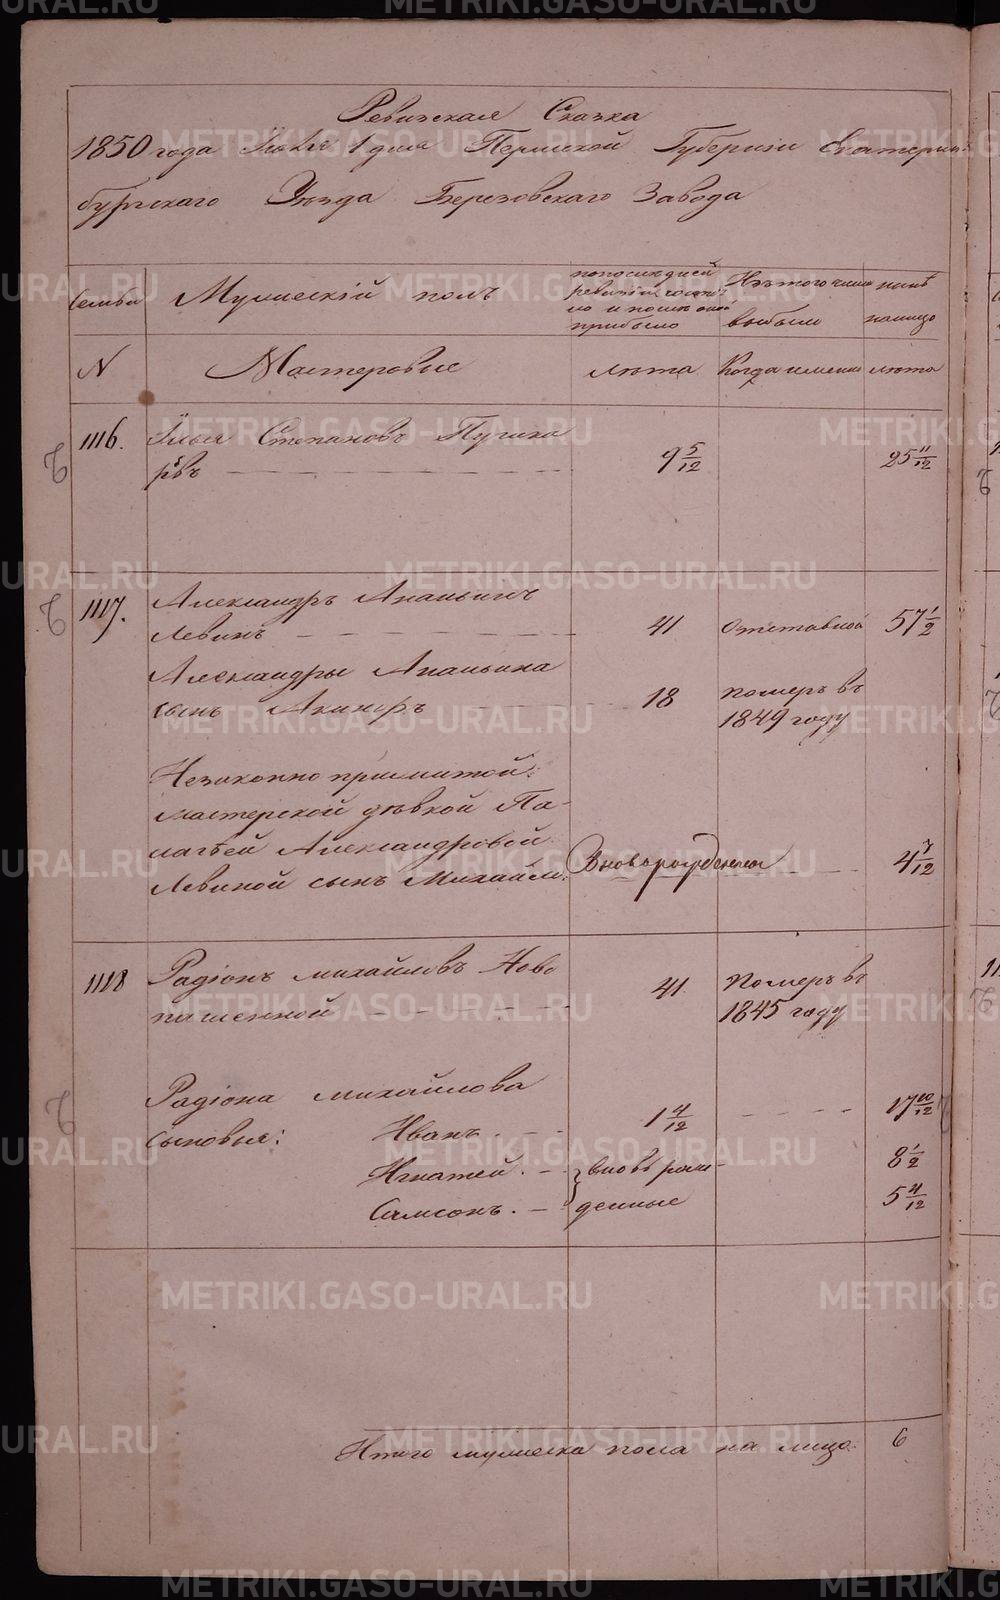 Ревизская Сказка
1850 года Iюня 1 дня Пермской Губернiи Екатерин-
бургскаго Уезда Березовскаго Завода
Семьи Мужескiй полъ по последней ревизiи состояло и после оной прибыло Изъ того числа выбыло ныне налицо
N Мастеровые лета Когда именно лета
1116. Илья Степановъ Пушка
ревъ 9 5/12 25 11/12
1117. Александръ Ананьинъ
Левинъ 41 Отставной 57 1/2
Александры Ананьина
сынъ 18 померъ въ
1849 году
Незаконно прижитой
мастерской девкой Па-
лагеей Александровой
Левиной сынъ Михайло Вноворожденной 4 7/12
1118 Радiонъ Михайловъ Ново
пашенной 41 Померъ въ
1845 году
Радiона Михайлова
сыновья: Иванъ. 1 4/12 17 10/12
Игнатей. вновь рож- 8 1/2
Самсонъ. денные 5 4/12
Итого мужеска пола на лицо 6
METRIKI.GASO-URAL.RU